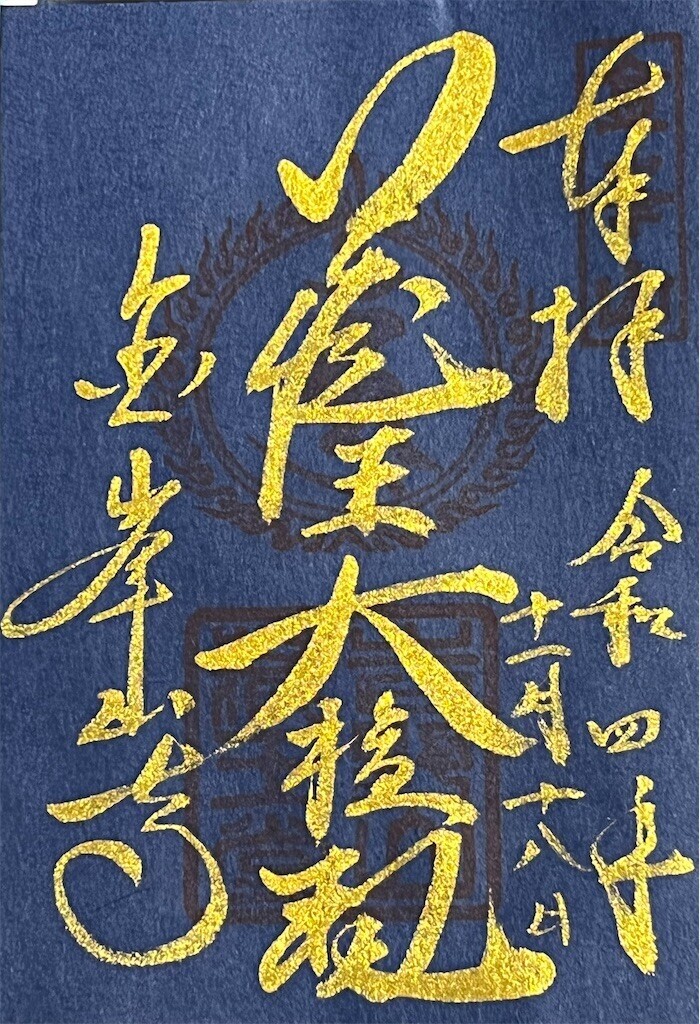 奉拝
令和四年
十一月十八日
蔵王大権現
金峯山寺